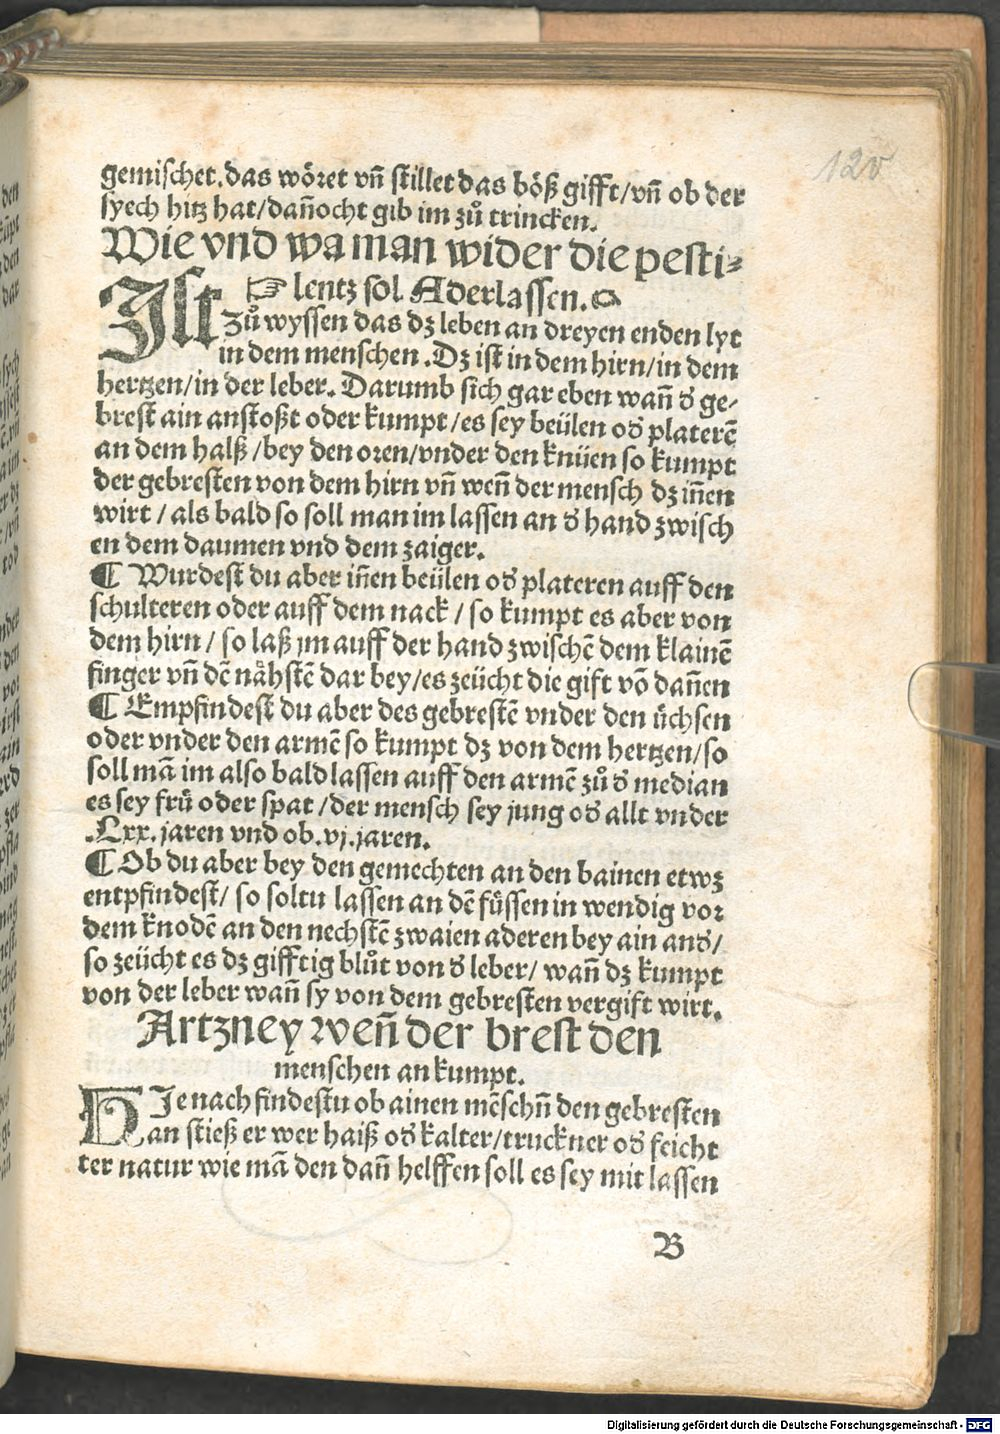 120
gemischet. das wöret vn̄ stillet das böß gifft/vn̄ ob der
syech hitz hat/dan̄ocht gib im zů trincken.
Wie vnd wa man wider die pesti⸗
☞ lentz sol Aderlassen.
Ist zů wyssen das dz leben an dreyen enden lyt
in dem menschen. Dz ist in dem hirn/in dem
hertzen/in der leber. Darumb sich gar eben wan̄ d̕ ge⸗
brest ain anstoßt oder kumpt/es sey beülen od̕ platerē
an dem halß/bey den oren/vnder den knüen so kumpt
der gebresten von dem hirn vn̄ wen̄ der mensch dz in̄en
wirt/als bald so soll man im lassen an d̕ hand zwisch
en dem daumen vnd dem zaiger.
¶ Wurdest du aber in̄en beülen od̕ plateren auff den
schulteren oder auff dem nack/so kumpt es aber von
dem hirn/so laß jm auff der hand zwischē dem klainē
finger vn̄ dē nåhstē dar bey/es zeücht die gift vō dan̄en
¶ Empfindest du aber des gebrestē vnder den üchsen
oder vnder den armē so kumpt dz von dem hertzen/so
soll mā im also bald lassen auff den armē zů d̕ median
es sey frü oder spat/der mensch sey jung od̕ allt vnder
.Lxx. jaren vnd ob .vj. jaren.
¶ Ob du aber bey den gemechten an den bainen etwz
entpfindest/so soltu lassen an dē füssen in wendig vor
dem knodē an den nechstē zwaien aderen bey ain and̕/
so zeücht es dz gifftig blůt von d̕ leber/wan̄ dz kumpt
von der leber wan̄ sy von dem gebresten vergift wirt.
Artzney wen̄ der brest den
menschen ankumpt.
HJe nach findestu ob ainen mēschn̄ den gebresten
an stieß er wer haiß od̕ kalter/truckner od̕ feicht
ter natur wie mā den dan̄ helffen soll es sey mit lassen
B
Digitalisierung gefördert durch die Deutsche Forschungsgemeinschaft - DFG